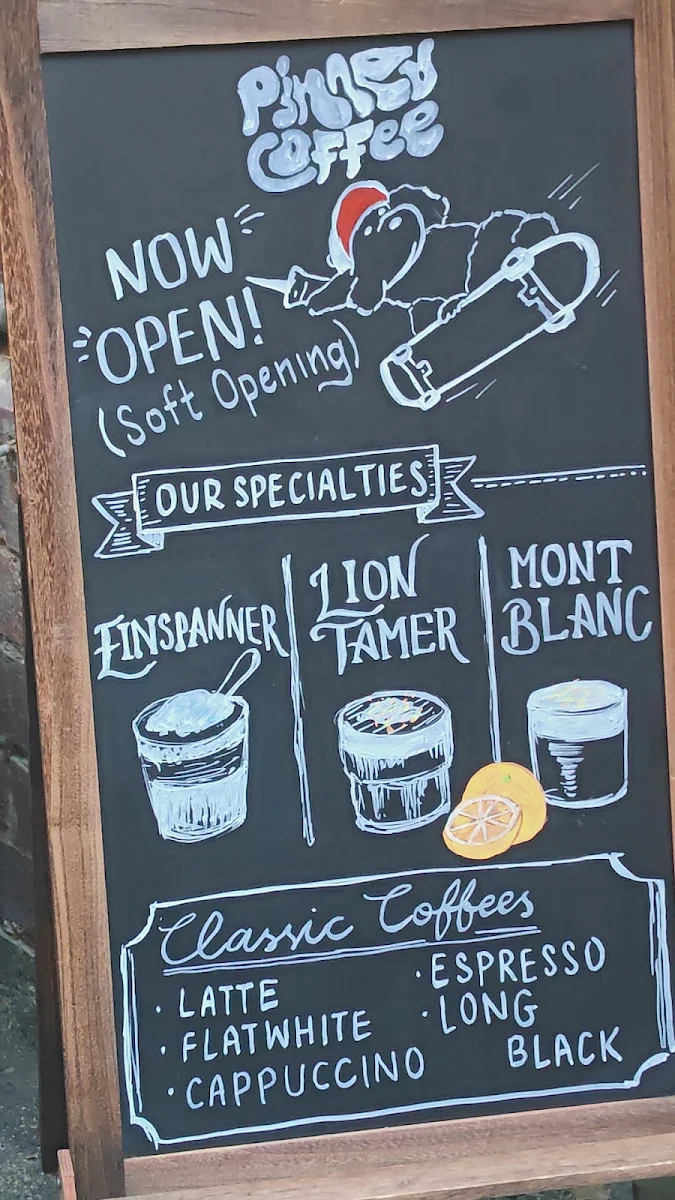 Pinned
Coffee
NOW
OPEN!
(Soft Opening)
OUR SPECIALTIES
EINSPANNER
LION
TAMER
MONT
BLANC
Classic Coffees
· LATTE
· FLATWHITE
· CAPPUCCINO
· ESPRESSO
· LONG
BLACK